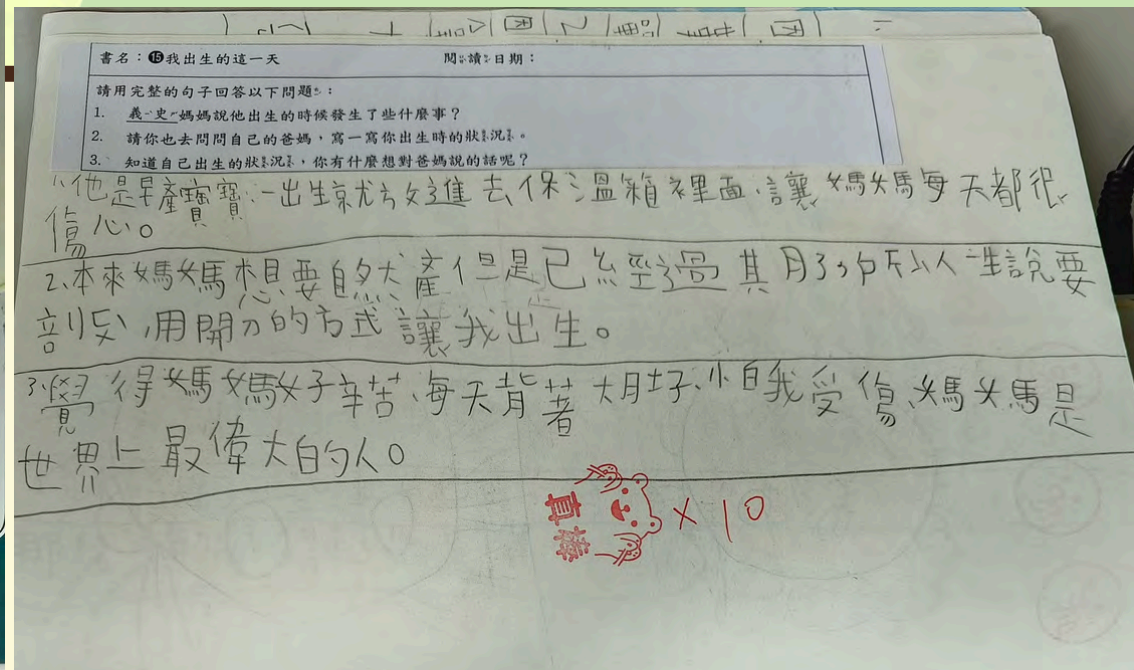 書名：⓯我出生的這一天 閱讀日期：
請用完整的句子回答以下問題：
1. 義史媽媽說他出生的時候發生了些什麼事？
2. 請你也去問問自己的爸媽，寫一寫你出生時的狀況。
3. 知道自己出生的狀況，你有什麼想對爸媽說的話呢？
1、他是早產寶寶、一出生就放進去保溫箱裡面、讓媽媽每天都很
傷心。
2、本來媽媽想要自然產但是已經過其月了、所以人一生說要
剖ㄈㄨˋ,用開刀的方式讓我出生。
3、覺得媽媽好辛苦、每天背著大肚子、小白我受傷、媽媽是
世界上最偉大的人。
真棒 × 10